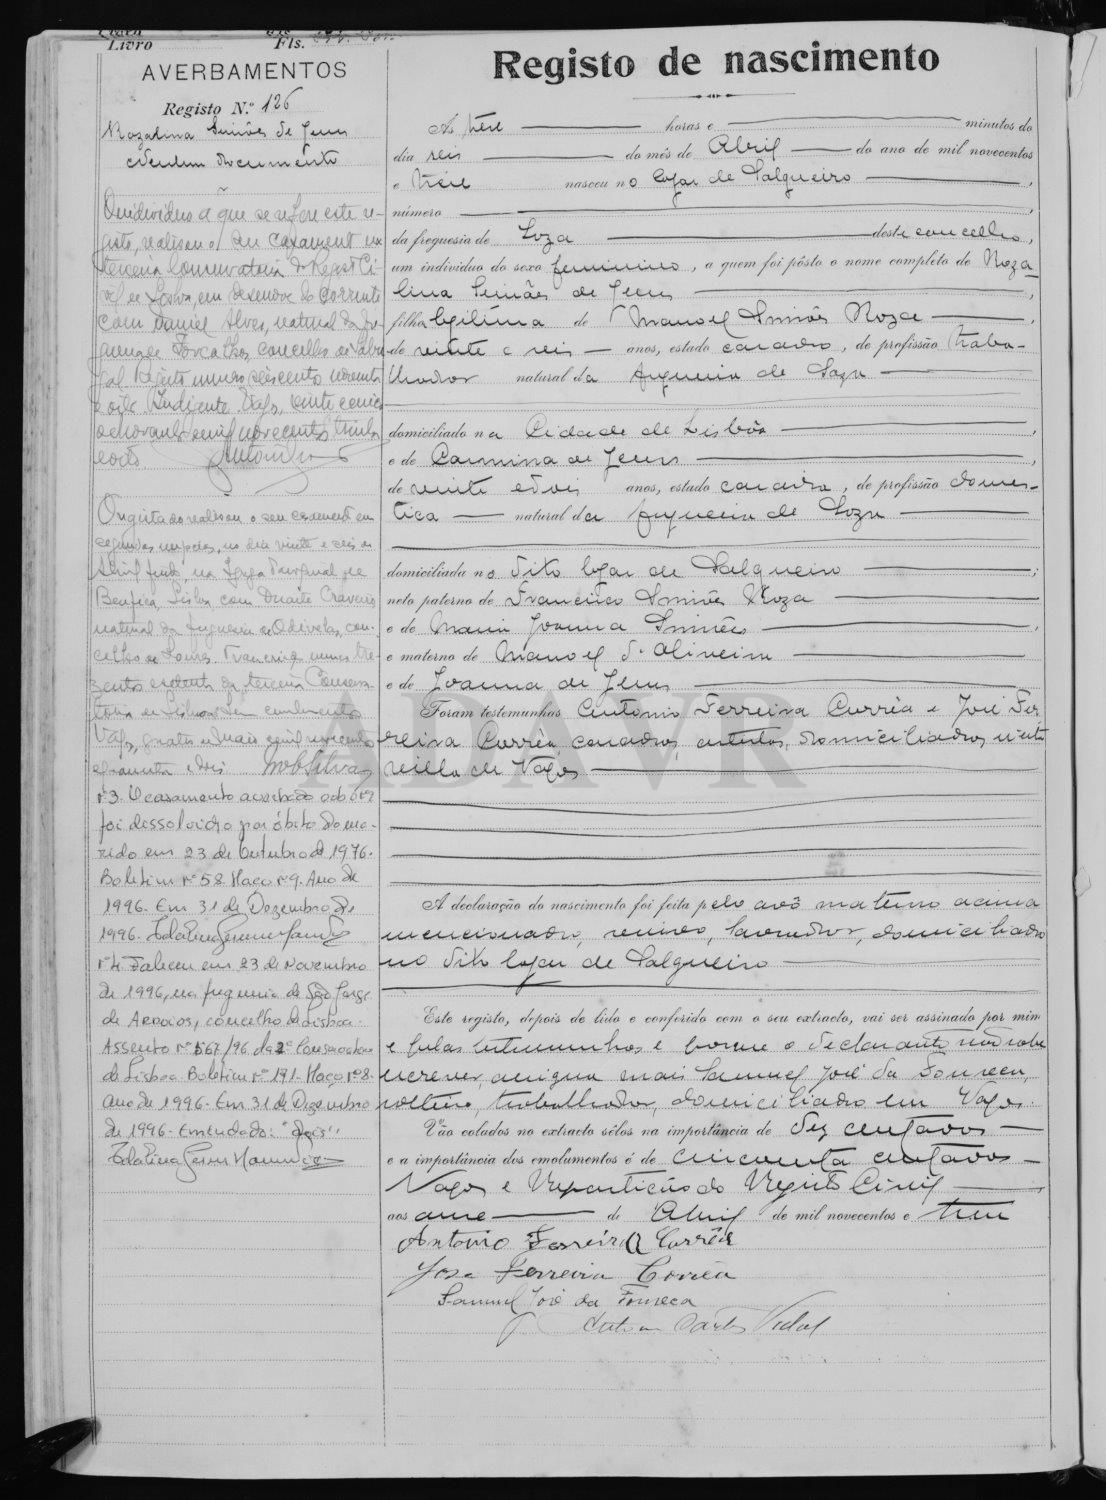 Livro Fls.
AVERBAMENTOS
Registo N.º 126
Rozalina Simões de Jesus
O individuo a que se refere este re-
gisto, realisou o seu casamento na
terceira Conservatoria do Registo Ci-
vil de Lisboa, em dezenove do corrente
com Daniel Alves, natural da fre-
guesia de Forcalhos, concelho de Sabu-
gal. Registo numero seiscentos noventa
e oito. Vagos, vinte e cinco
de mil novecentos trinta
e oito
O registado realisou o seu casamento em
segundas nupcias, no dia vinte e seis de
Abril findo, na Igreja Paroquial de
Benfica, Lisboa, com Duarte Craveiro
natural da freguesia de Odivelas, con-
celho de Loures. numero tre-
zentos e sessenta da terceira Conserva-
toria de Lisboa. Sem emolumentos
Vagos, quatro de Maio de mil novecentos
e quarenta e dois
nº 3. O casamento averbado sob o nº 2
foi dissolvido por óbito do ma-
rido em 23 de Outubro de 1976.
Boletim nº 58. Maço nº 9. Ano de
1996. Em 31 de Dezembro de
1996.
nº 4. Faleceu em 23 de Novembro
de 1996, na freguesia de São Jorge
de Arroios, concelho de Lisboa.
Assento nº 567/96 da 2ª Conservatória
de Lisboa. Boletim nº 191. Maço nº 8.
ano de 1996. Em 31 de Dezembro
de 1996. Emendado: "dois"
Registo de nascimento
Às treze horas e minutos do
dia seis do mês de Abril do ano de mil novecentos
e treze nasceu no logar de Salgueiro
número
da freguesia de Soza deste concelho,
um individuo do sexo feminino, a quem foi pôsto o nome completo de Roza-
lina Simões de Jesus
filha legitima de Manoel Simões Roza
de vinte e seis anos, estado casado, de profissão traba-
lhador natural da freguesia de Soza
domiciliado na Cidade de Lisbôa
e de Carmina de Jesus
de vinte e dois anos, estado casada, de profissão domes-
tica natural da freguesia de Soza
domiciliada no dito logar de Salgueiro
neto paterno de Francisco Simões Roza
e de Maria Joanna Simões
e materno de Manoel d'Oliveira
e de Joanna de Jesus
Foram testemunhas Antonio Ferreira Corrêa e José Fer-
reira Corrêa, casados, artistas, domiciliados n'esta
villa de Vagos
A declaração do nascimento foi feita pelo avô materno acima
mencionado, viuvo, lavrador, domiciliado
no dito logar de Salgueiro
Este registo, depois de lido e conferido com o seu extracto, vai ser assinado por mim
e pelas testemunhas e porque o declarante não sabe
escrever, assigna mais Samuel José da Fonseca,
solteiro, trabalhador, domiciliado em Vagos.
Vão colados no extracto sêlos na importância de dez centavos
e a importância dos emolumentos é de cincoenta centavos
Vagos e Repartição do Registo Civil
aos onze de Abril de mil novecentos e treze
Antonio Ferreira Corrêa
Jose Ferreira Corrêa
Samuel José da Fonseca
ADAVR